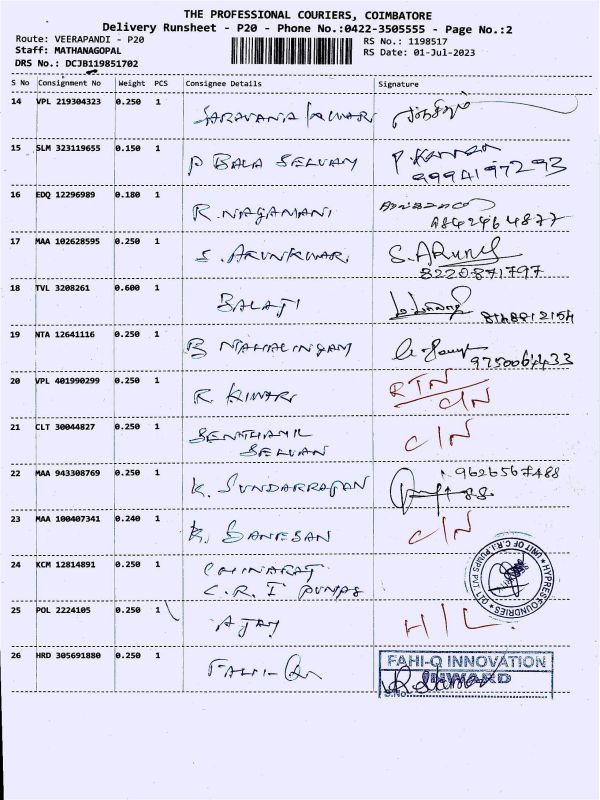 THE PROFESSIONAL COURIERS, COIMBATORE
Delivery Runsheet - P20 - Phone No.:0422-3505555 - Page No.:2
Route: VEERAPANDI - P20
RS No.: 1198517
Staff: MATHANAGOPAL
RS Date: 01-Jul-2023
DRS No.: DCJB119851702
S No Consignment No Weight PCS Consignee Details Signature
14 VPL 219304323 0.250 1
SARAVANA KUMAR
15 SLM 323119655 0.150 1
P BALA SELVAM P. Kannan
9994197293
16 EDQ 12296989 0.180 1
R. NAGAMANI
9842464877
17 MAA 102628595 0.250 1
S. ARUNKUMAR S. ARUN
8220871797
18 TVL 3208261 0.600 1
BALAJI
19 NTA 12641116 0.250 1
B MAHALINGAM 9750064433
20 VPL 401990299 0.250 1
R. KUMAR RTN
C/N
21 CLT 30044827 0.250 1
SENTHAMIL C/N
SELVAN
22 MAA 943308769 0.250 1
9626567488
K. SUNDARRAJAN
23 MAA 100407341 0.240 1
K. GANESAN C/N
24 KCM 12814891 0.250 1
CHINARAJ
C.R.I PUMPS
HYPRES FOUNDRIES
UNIT OF C.R.I. PUMPS PVT LTD
25 POL 2224105 0.250 1
AJAY H/L.
26 HRD 305691880 0.250 1
FAHI-Q
FAHI-Q INNOVATION
INWARD
S.No